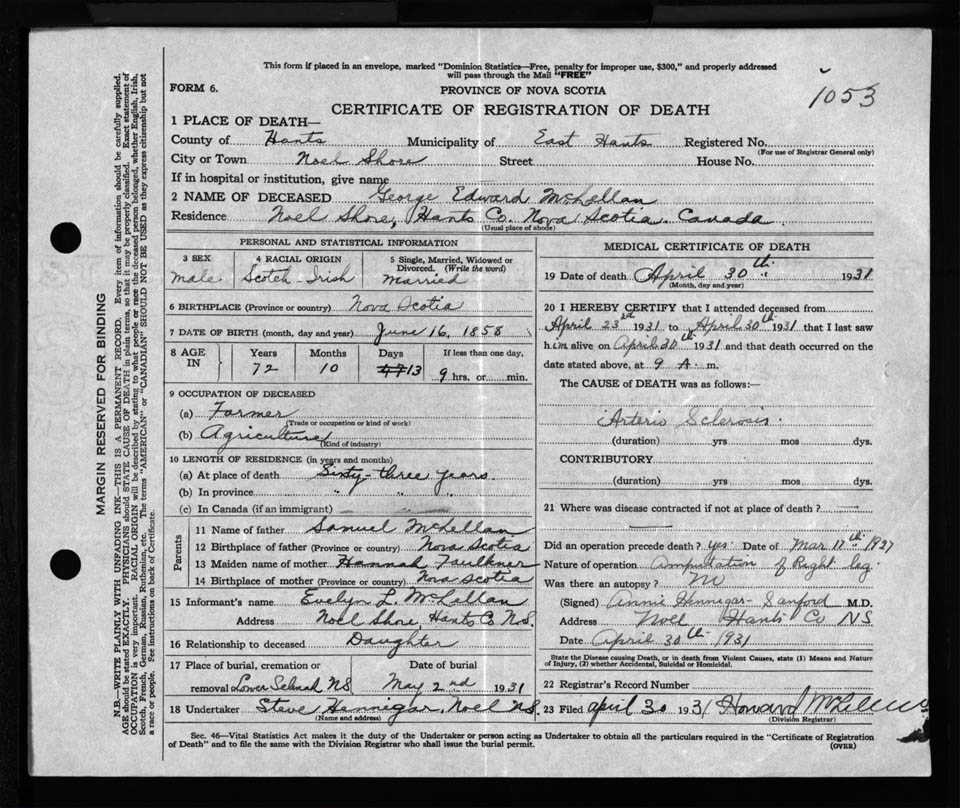 This form if placed in an envelope, marked "Dominion Statistics—Free, penalty for improper use, $300," and properly addressed
will pass through the Mail "FREE"
1053
FORM 6.
PROVINCE OF NOVA SCOTIA
CERTIFICATE OF REGISTRATION OF DEATH
1 PLACE OF DEATH—
County of Hants Municipality of East Hants Registered No.
(For use of Registrar General only)
City or Town Noel Shore Street House No.
If in hospital or institution, give name
2 NAME OF DECEASED George Edward McLellan
Residence Noel Shore, Hants Co. Nova Scotia. Canada
(Usual place of abode)
PERSONAL AND STATISTICAL INFORMATION
3 SEX 4 RACIAL ORIGIN 5 Single, Married, Widowed or Divorced. (Write the word)
male Scotch-Irish married
6 BIRTHPLACE (Province or country) Nova Scotia
7 DATE OF BIRTH (month, day and year) June 16, 1858
8 AGE IN Years Months Days If less than one day,
72 10 13 9 hrs. or min.
9 OCCUPATION OF DECEASED
(a) Farmer
(Trade or occupation or kind of work)
(b) Agriculture
(Kind of industry)
10 LENGTH OF RESIDENCE (in years and months)
(a) At place of death Sixty-three years
(b) In province " " "
(c) In Canada (if an immigrant)
Parents
11 Name of father Samuel McLellan
12 Birthplace of father (Province or country) Nova Scotia
13 Maiden name of mother Hannah Faulkner
14 Birthplace of mother (Province or country) Nova Scotia
15 Informant's name Evelyn L. McLellan
Address Noel Shore, Hants Co N.S.
16 Relationship to deceased Daughter
17 Place of burial, cremation or Date of burial
removal Lower Selmah NS May 2nd 1931
18 Undertaker Steve Hennigar, Noel N.S.
(Name and address)
MEDICAL CERTIFICATE OF DEATH
19 Date of death April 30th 1931
(Month, day and year)
20 I HEREBY CERTIFY that I attended deceased from
April 23rd 1931 to April 30th 1931 that I last saw
him alive on April 30th 1931 and that death occurred on the
date stated above, at 9 A. m.
The CAUSE of DEATH was as follows:—
Arterio Sclerosis.
(duration) yrs mos dys.
CONTRIBUTORY
(duration) yrs mos dys.
21 Where was disease contracted if not at place of death?
Did an operation precede death? yes. Date of Mar 17th 1927
Nature of operation Amputation of Right leg.
Was there an autopsy? no
(Signed) Annie Hennigar-Sanford M.D.
Address Noel Hants Co NS
Date April 30th 1931
State the Disease causing Death, or in death from Violent Causes, state (1) Means and Nature
of Injury, (2) whether Accidental, Suicidal or Homicidal.
22 Registrar's Record Number
23 Filed April 30 1931 Howard McLellan
(Division Registrar)
Sec. 46—Vital Statistics Act makes it the duty of the Undertaker or person acting as Undertaker to obtain all the particulars required in the "Certificate of Registration
of Death" and to file the same with the Division Registrar who shall issue the burial permit.
(OVER)
MARGIN RESERVED FOR BINDING
N.B.—WRITE PLAINLY WITH UNFADING INK—THIS IS A PERMANENT RECORD. Every item of information should be carefully supplied.
AGE should be stated EXACTLY. PHYSICIANS should STATE CAUSE OF DEATH in plain terms, so that it may be properly classified. Exact statement of
OCCUPATION is very important. RACIAL ORIGIN will be described by stating to what people or race the deceased person belonged, whether English, Irish,
Scotch, French, German, Russian, Ruthenian, etc. The terms "AMERICAN" or "CANADIAN" SHOULD NOT BE USED as they express citizenship but not
a race or people. See instructions on back of Certificate.